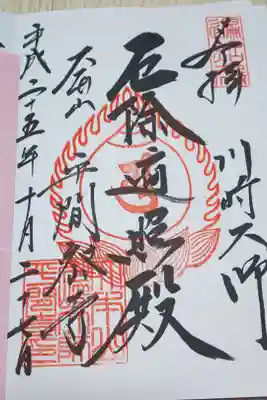 奉拝 川崎大師
厄除遍照殿
大本山 平間寺
平成二十五年十月二十七日